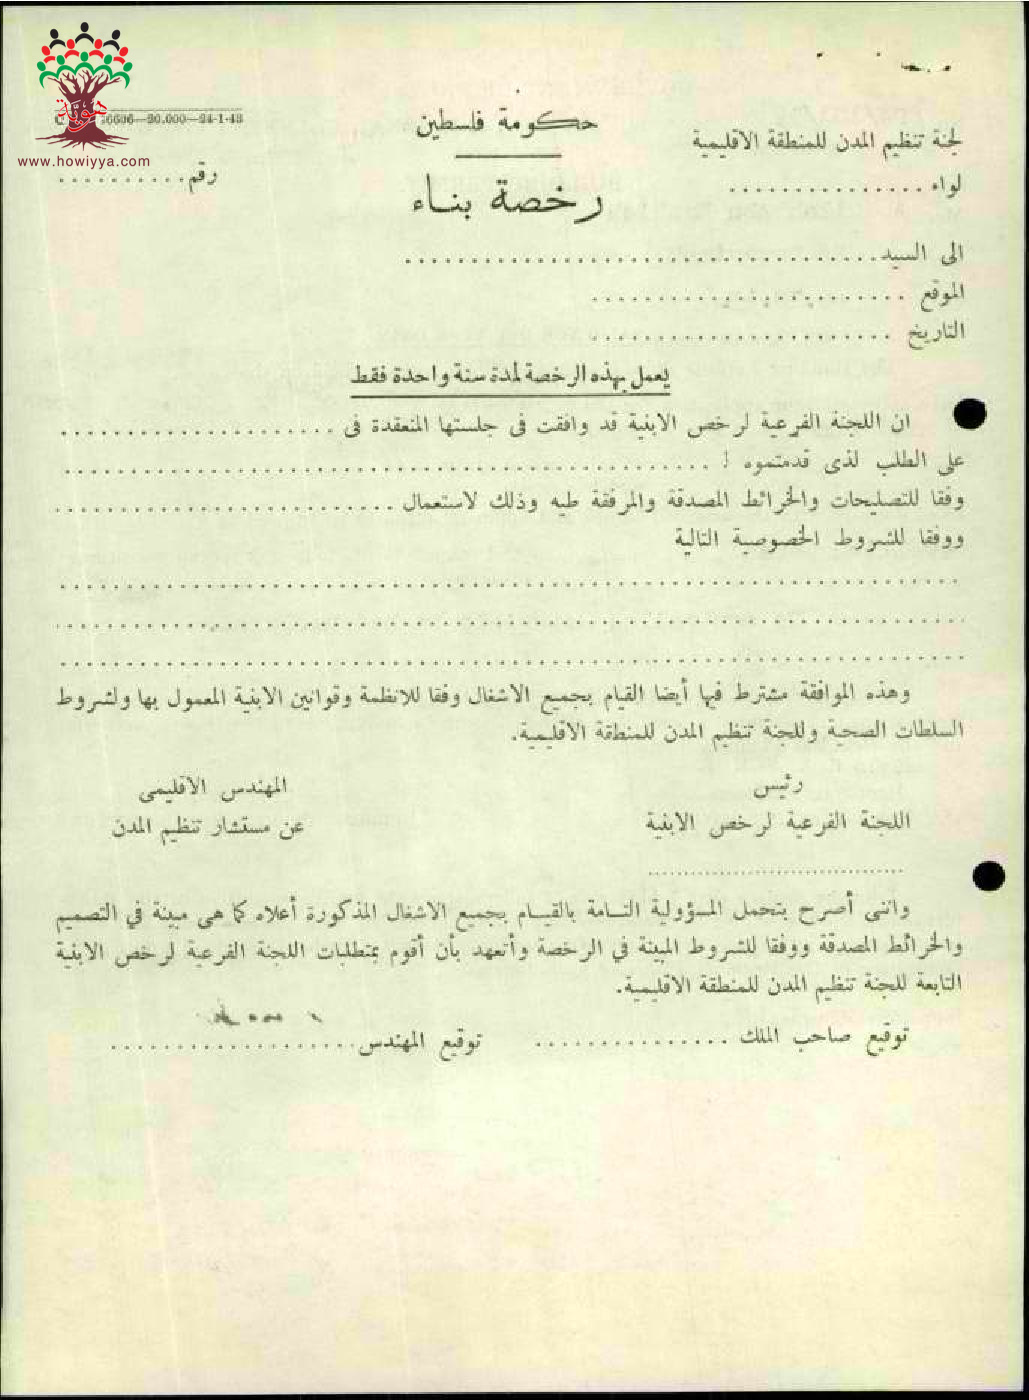 هوية
www.howiyya.com
6606—20.000—24-1-43
حكومة فلسطين
لجنة تنظيم المدن للمنطقة الاقليمية
لواء ...............
رقم..........
رخصة بناء
الى السيد....................................
الموقع ........................
التاريخ .......................
يعمل بهذه الرخصة لمدة سنة واحدة فقط
ان اللجنة الفرعية لرخص الابنية قد وافقت في جلستها المنعقدة في .....................
على الطلب لذى قدمتموه ! .................................................
وفقا للتصليحات والخرائط المصدقة والمرفقة طيه وذلك لاستعمال ..........................
ووفقا للشروط الخصوصية التالية
....................................................................
....................................................................
....................................................................
وهذه الموافقة مشترط فيها أيضا القيام بجميع الاشغال وفقا للانظمة وقوانين الابنية المعمول بها ولشروط
السلطات الصحية وللجنة تنظيم المدن للمنطقة الاقليمية.
رئيس
المهندس الاقليمى
اللجنة الفرعية لرخص الابنية
عن مستشار تنظيم المدن
................................
واننى أصرح بتحمل المسؤولية التامة بالقيام بجميع الاشغال المذكورة أعلاه كما هى مبينة في التصميم
والخرائط المصدقة ووفقا للشروط المبينة في الرخصة وأتعهد بأن أقوم بمتطلبات اللجنة الفرعية لرخص الابنية
التابعة للجنة تنظيم المدن للمنطقة الاقليمية.
توقيع صاحب الملك ............... توقيع المهندس...................